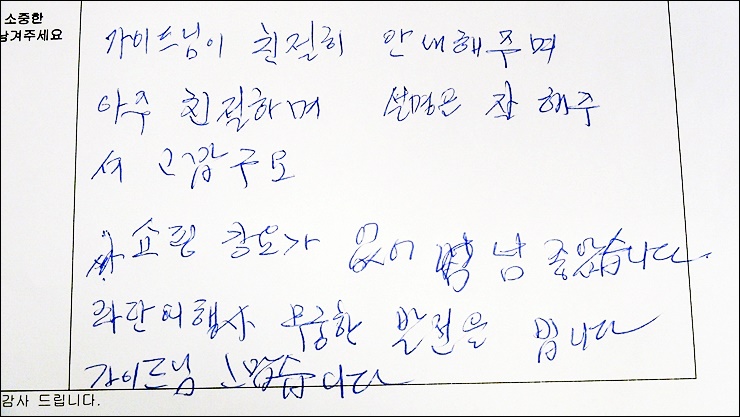 소중한
남겨주세요
가이드님이 친절히 안내해주며
아주 친절하며 설명은 잘 해주
셔 고맙구요
쇼핑 강요가 없어 넘 좋았습니다.
여행사 무궁한 발전을 빕니다
가이드님 고맙습니다
감사 드립니다.